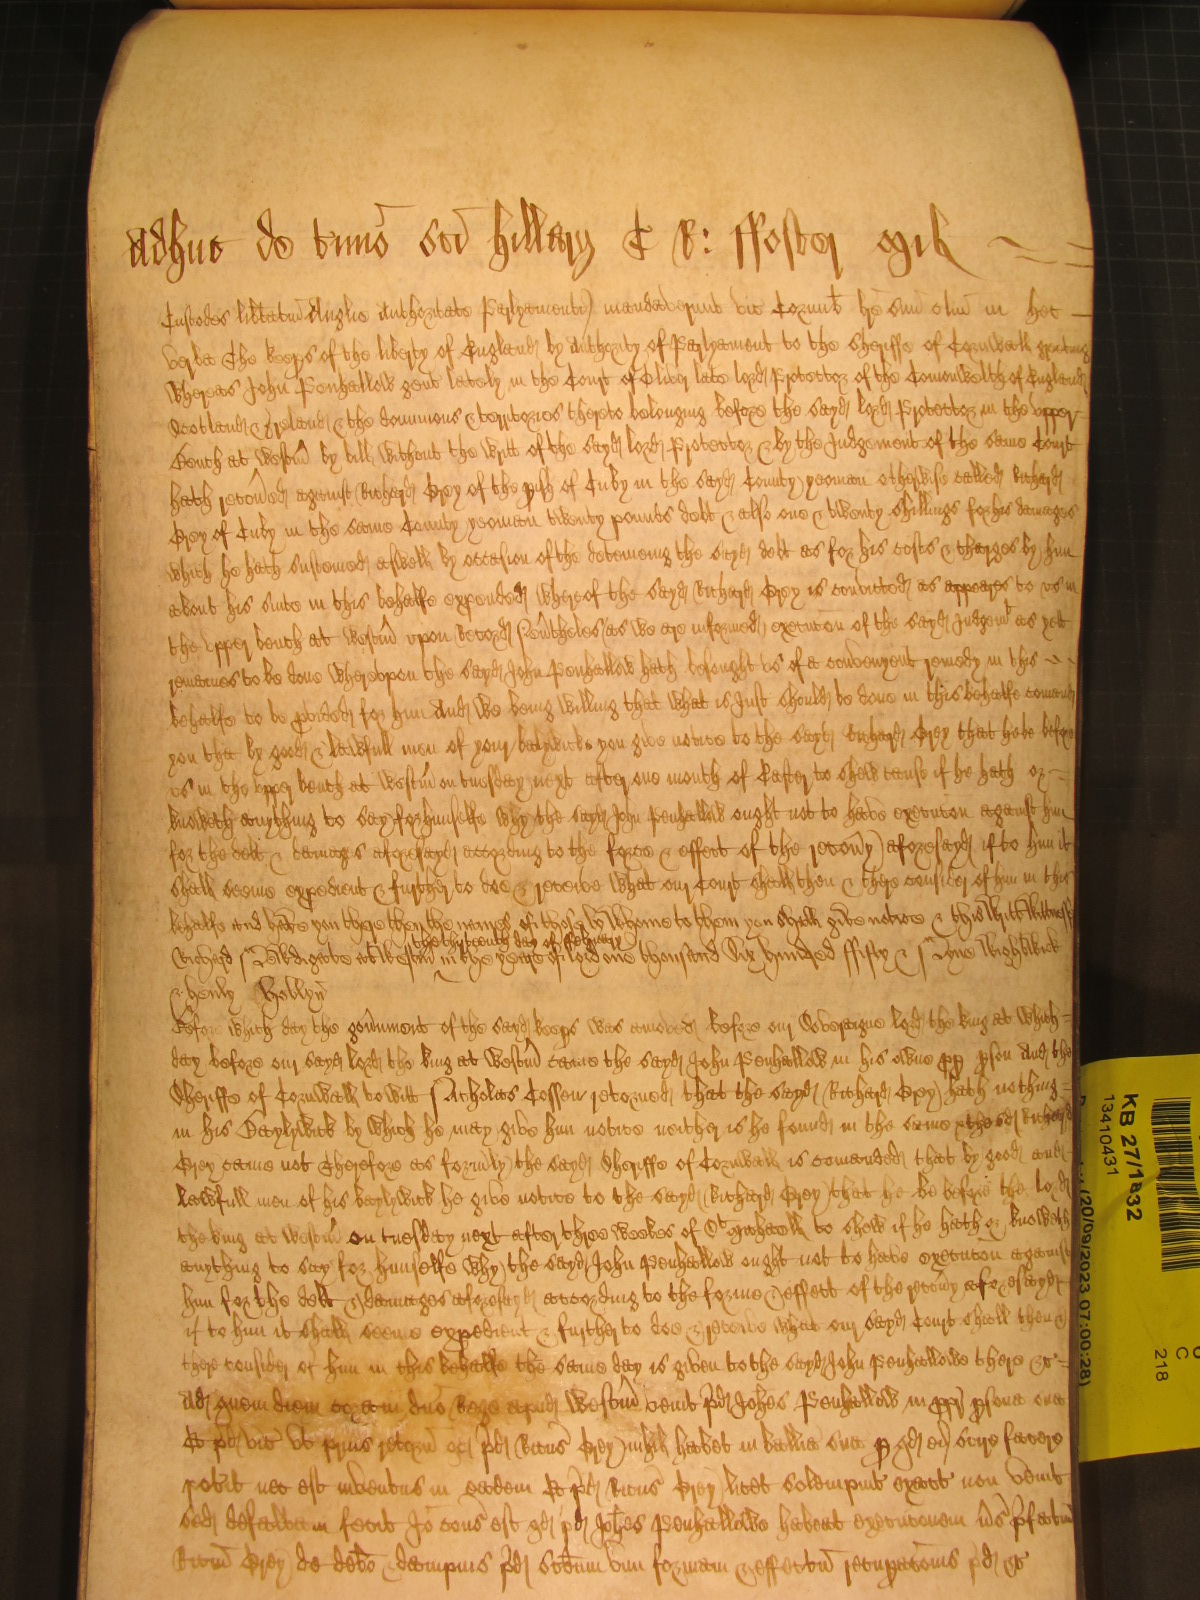 Adhuc de termo sci Hillary T R: ffoster Mil
Custodes libtatis Anglie Authoritate Parlyamenti mandaverunt vic Cornub bre suu clm in hec
verba The keeps of the liberty of England by Authority of Parlyament to the Sheriffe of Cornwall greeting
Whereas John Penhallow gent lately in the Court of Oliver late lord Protector of the Comonwelth of England
Scotland & Ireland & the dominions & territories thereto belonging before the sayd lord Protector in the upper
Bench at Westm by bill without the writt of the sayd lord Protector & by the Judgement of the same Court
hath recoved against Richard Grey of the pish of Cuby in the sayd County yeoman otherwise called Richard
Grey of Cuby in the same County yeoman twenty pounds debt & also one & twenty shillings for his damages
which he hath susteined aswell by occasion of the deteineing the sayd debt as for his costs & charges by him
about his suite in this behalfe expended whereof the sayd Richard Grey is convicted as appeares to us in
the upper bench at Westm upon Record Nevtheles as we are informed execucon of the sayd Judgemt as yett
remaines to be done whereupon the sayd John Penhallow hath besought us of a convenyent remedy in this
behalfe to be pvided for him And we being willing that what is Just should be done in this behalfe comand
you that by good & lawfull men of your baylywick you give notice to the sayd Richard Grey that hebe before
us in the upper bench at Westm on tuesday next after one month of Easter to shew cause if he hath or
knoweth anything to say for himselfe why the sayd John Penhallow ought not to have execucon against him
for the debt & damags aforesayd according to the force & effect of the recovy aforesayd if to him it
shall seeme expedient & further to doe & receive what our Court shall then & there consider of him in this
behalfe and have you there then the names of those by whome to them you shall give notice & this writt wittnesse
the thirteenth day of ffebruary
Richard Newdigate at Westm in the yeare of lord one thousand Six hundred ffifty & Nyne Wightwick
& henly Hoblyn
Before which day the govnment of the sayd keeps was amoved before our Soveraigne lord the king at which
day before our sayd lord the king at Westm came the sayd John Penhallow in his owne pp pson And the
Sheriffe of Cornwall to witt Nicholas Cossen retorned that the sayd Richard Grey hath nothing
in his Baylywick by which he may give him notice neither is he found in the same & the sd Richard
Grey came not Therefore as formly the sayd Sheriffe of Cornwall is comanded that by good and
lawfull men of his baylywick he give notice to the sayd Richard Grey that he be before the lord
the king at Westm on tuesday next after three weekes of St Michaell to shew if he hath or knoweth
anything to say for himselfe why the sayd John Penhallow ought not to have execucon against
him for the debt & damages aforesayd according to the forme & effect of the recovy aforesayd
if to him it shall seeme expedient & further to doe & receive what our sayd Court shall then &
there consider of him in this behalfe the same day is given to the sayd John Penhallowe there &c
Ad quem diem coram dno Rege apud Westm venit pd Johes Penhallow in pp psona sua
Et pd vic ut prius retorn qd pd Ricus Grey nihil habet in balliva sua p qd ei scire facere
potuit nec est inventus in eadem Et pd Ricus Grey licet solempnit exact non venit
sed defaltam fecit Io cons est qd pd Johes Penhallowe habeat execuconem vs pfatum
Ricum Grey de debo & dampnis pd scdum vim formam & effectum recupacons pd &c
KB 27/1832
13410431
(20/09/2023 07:00:28)
C
218